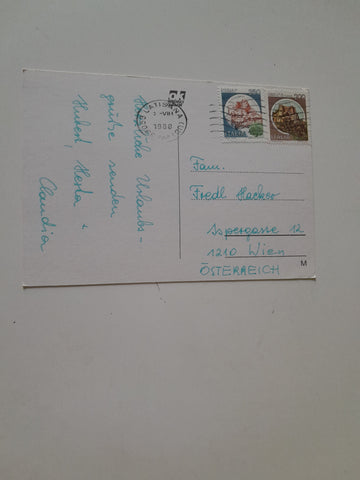 Herzliche Urlaubs-
grüße senden
Hubert, Herta +
Claudia
1988
Fam.
Fredl Hacker
Aspergasse 12
1210 Wien
ÖSTERREICH
M